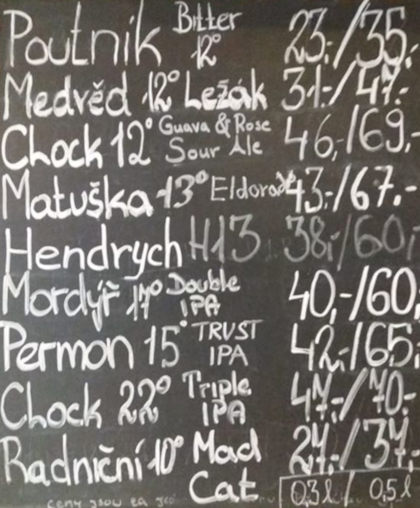 Poutník Bitter 12° 23,-/35,-
Medvěd 12° Ležák 31,-/47,-
Chock 12° Guava & Rose Sour Ale 46,-/69,-
Matuška 13° Eldorado 43,-/67,-
Hendrych H13 38,-/60,-
Mordýř 17° Double IPA 40,-/60,-
Permon 15° TRUST IPA 42,-/65,-
Chock 22° Triple IPA 47,-/70,-
Radniční 10° Mad Cat 27,-/37,-
0,3 l / 0,5 l
ceny jsou za